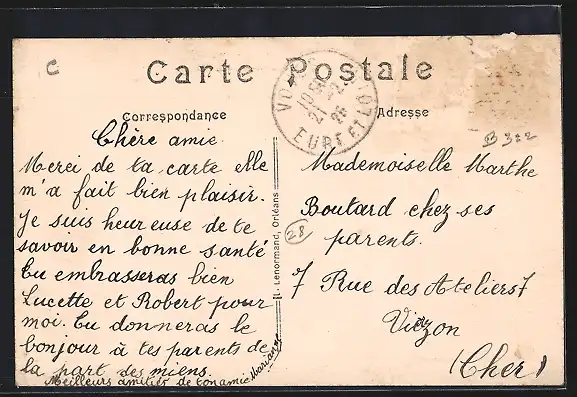 C
Carte Postale
Correspondance
Adresse
EURE ET L
26
B 322
Chère amie
Merci de ta carte elle
m'a fait bien plaisir.
Je suis heureuse de te
savoir en bonne santé
tu embrasseras bien
Lucette et Robert pour
moi. tu donneras le
bonjour à tes parents de
la part des miens.
Meilleurs amitiés de ton amie Marianne
L. Lenormand, Orléans
28
Mademoiselle Marthe
Boutard chez ses
parents.
7 Rue des Ateliers 7
Vierzon
(Cher)